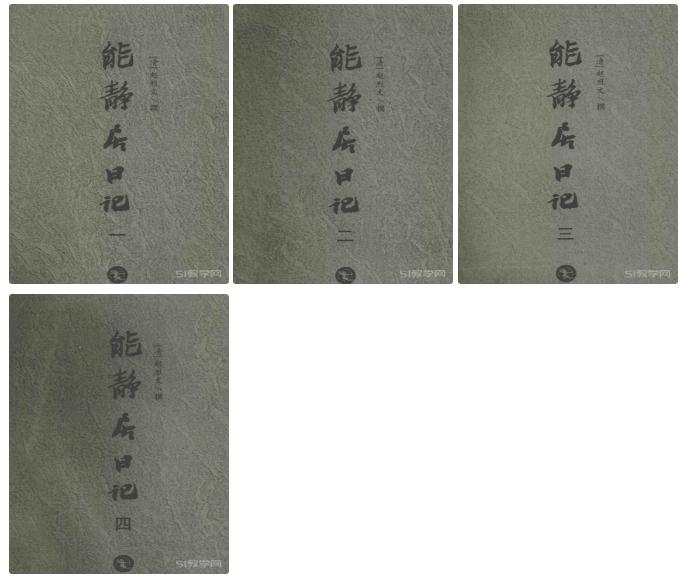 能静居日记
[清]赵烈文 撰
一
51教学网
能静居日记
[清]赵烈文 撰
二
51教学网
能静居日记
[清]赵烈文 撰
三
51教学网
能静居日记
[清]赵烈文 撰
四
51教学网